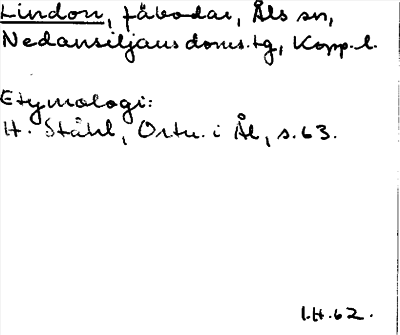 Lindon, fäbodar, Åls sn,
Nedansiljans doms.tg, Kopp.l.
Etymologi:
H. Ståhl, Ortn. i Ål, s.63.
1.H.62.